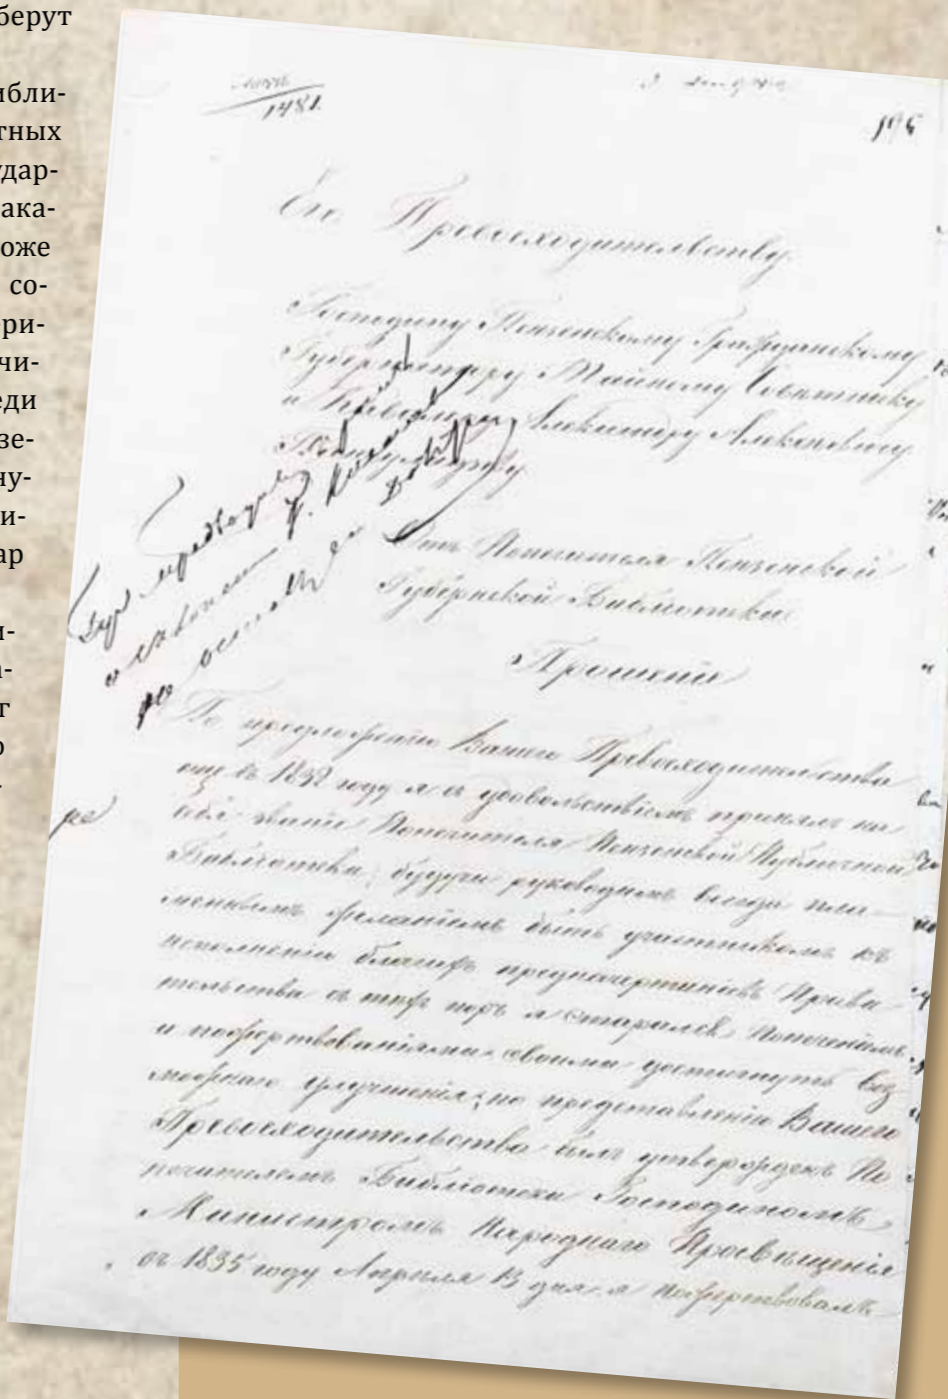 берут
ибли-
тных
удар-
ака-
оже
со-
ери-
чи-
еди
зе-
ну-
и-
ар
и-
а-
т
о
1481.
195
Его Превосходительству
Господину Пензенскому Гражданскому
Губернатору Тайному Советнику
и Кавалеру Александру Алексеевичу
Панчулидзеву
Отъ Попечителя Пензенской
Губернской Библиотеки
Прошеніе
По предложенію Вашего Превосходительства
еще въ 1832 году я съ удовольствіемъ принялъ на
себя званіе Попечителя Пензенской Публичной
Библіотеки, будучи руководимъ всегда пла-
меннымъ желаніемъ быть участникомъ къ
исполненію благихъ предначертаніевъ Прави-
тельства съ техъ поръ я старался попеченіемъ
и пожертвованіями своими достигнуть воз
можнаго улучшенія; по представленію Вашего
Превосходительства былъ утвержденъ По
печителемъ Библіотеки Господиномъ
Министромъ Народнаго Просвещенія
въ 1835 году Апреля 13 дня я пожертвовалъ